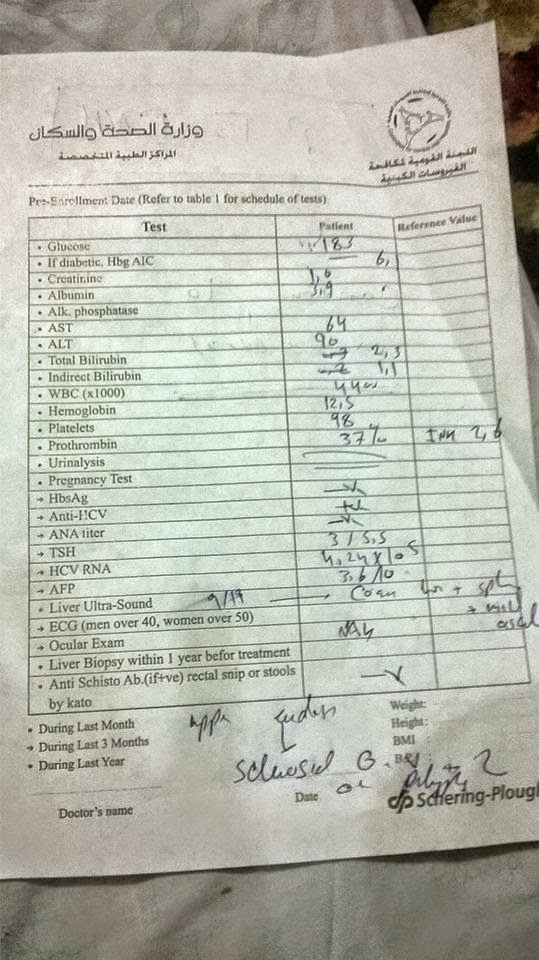 وزارة الصحة والسكان
المراكز الطبية المتخصصة
اللجنة القومية لمكافحة
الفيروسات الكبدية
Pre-Enrollment Date (Refer to table 1 for schedule of tests)
Test Patient Reference Value
• Glucose 183
• If diabetic, Hbg AIC 6,
• Creatinine 1,6
• Albumin 3,9
• Alk. phosphatase
• AST 64
• ALT 90
• Total Bilirubin 2,3
• Indirect Bilirubin 1,1
• WBC (x1000) 4400
• Hemoglobin 12,5
• Platelets 98
• Prothrombin 37%
• Urinalysis
• Pregnancy Test
→ HbsAg -ve
→ Anti-HCV +ve
→ ANA titer -ve
→ TSH 3/5,5
→ HCV RNA 4,24x10 5
→ AFP 3,6/10
• Liver Ultra-Sound
→ ECG (men over 40, women over 50)
→ Ocular Exam
• Liver Biopsy within 1 year befor treatment
• Anti Schisto Ab.(if+ve) rectal snip or stools -ve
by kato
• During Last Month
→ During Last 3 Months
• During Last Year
Weight:
Height:
BMI
Date
Doctor's name
Schering-Plough